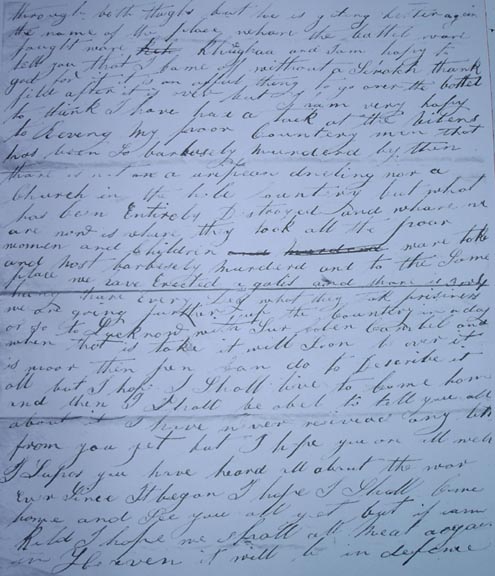 through both thighs but he is geting better again
the name of the place wehare the battel was
faught ware Khughaa and I am hapy to
tell you that I came of without a Scratch thank
god for it it is an thing to go over the battel
fild after it is over but
to think I have had a luck at the I am very hapy
to Reveng my poor Country men that
has been so barbusely murdered by them
thare is not an a dweling nor a
Church in the hole Country but what
has been Entirely Distroyed and whare we
are now is whare they took all the poor
women and Children ware toke
and most barbusely murderd and to the Same
place we have Erected a galos and thare is
hung thare Every day what they tak prisiners
we are going further up the Country in a day
or so to Lucknow with Sur Colen Cambel and
when that is take it will Soon be over it
is moor then pen can do to describe it
all but I hope I Shall live to Come home
and then I Shall be abel to tell you all
about it I have never receved any
from you yet but I hope you are all well
I Supos you have heard all about the war
Ever Since It began I hope I Shall Come
home and See you all yet but if I am
Kild I hope we shall all meat agair
in Heaven it will be in defence